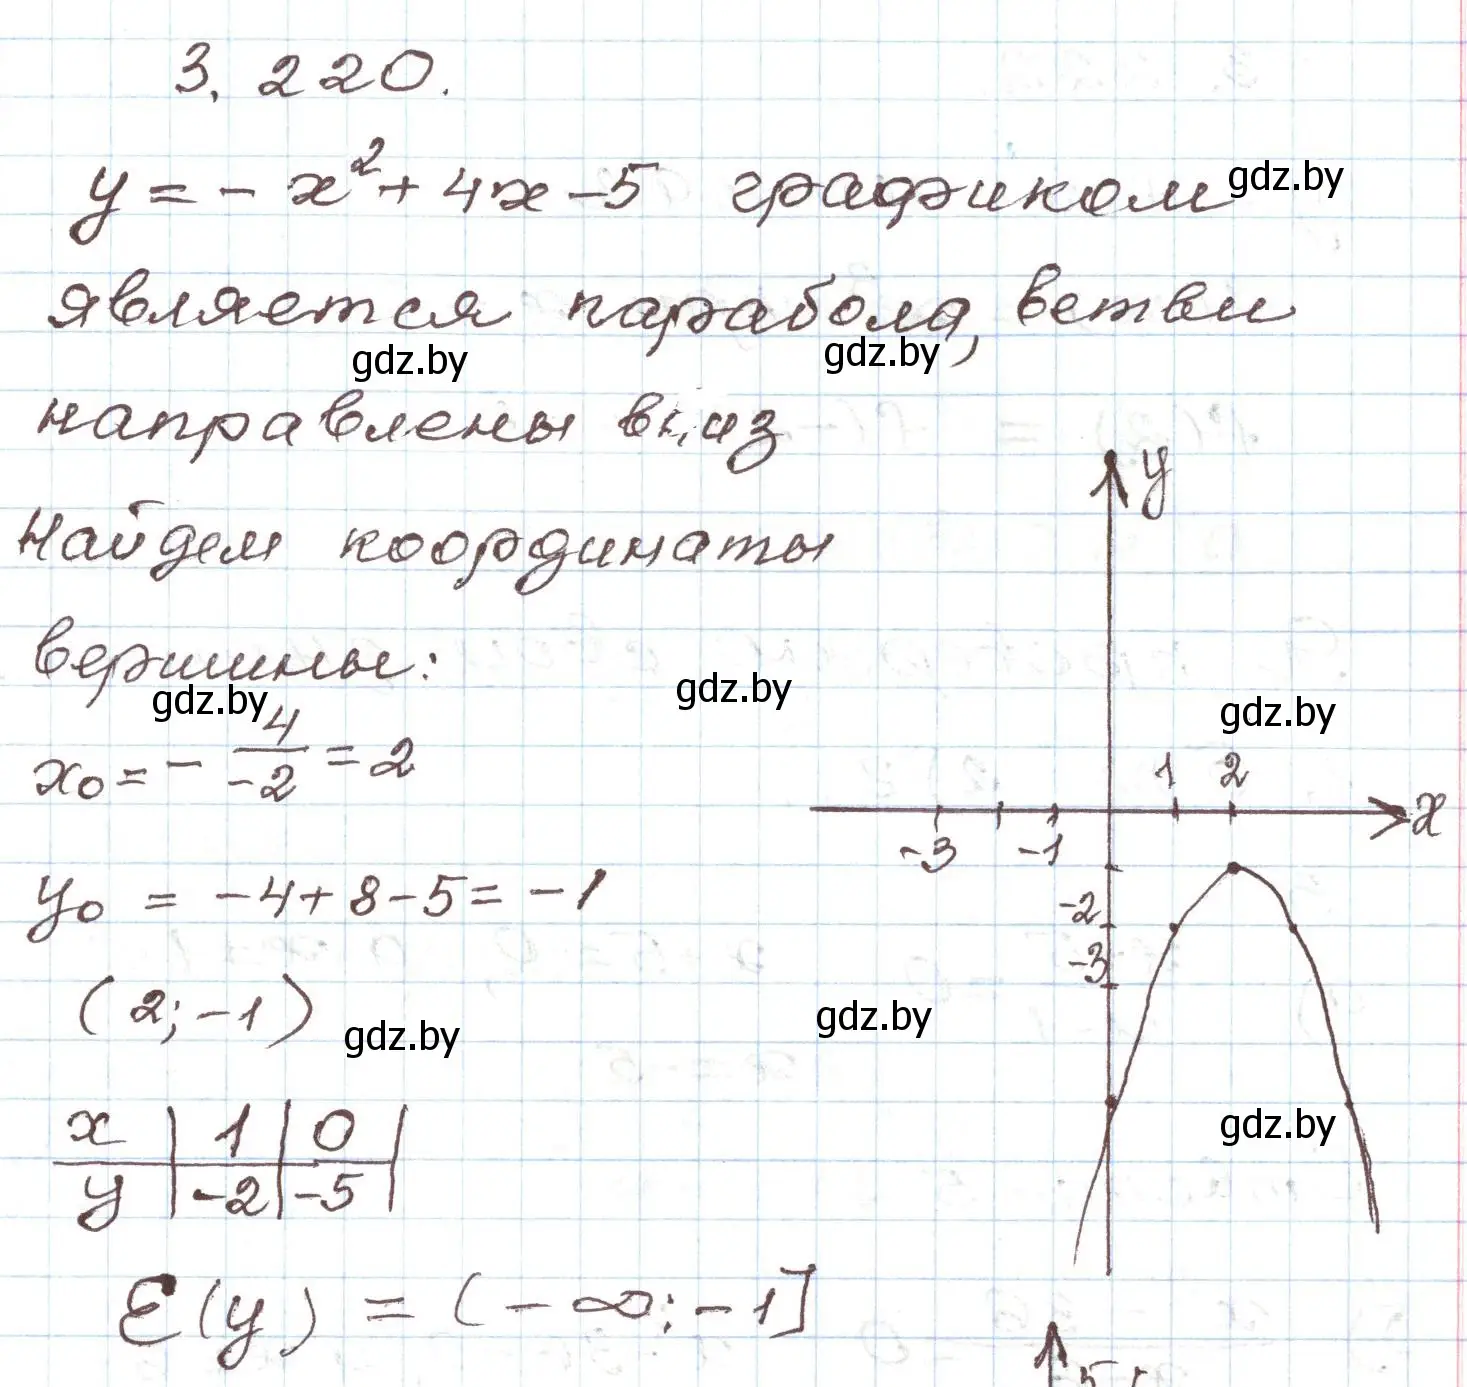 3.220.
y = - x² + 4x - 5 графиком gdz.by
является парабола, ветви
gdz.by gdz.by
направлены вниз
Найдем координаты
вершины:
gdz.by gdz.by gdz.by
x₀ = - 4/-2 = 2
y₀ = -4 + 8 - 5 = -1
(2; -1)
gdz.by gdz.by
x | 1 | 0 |
y | -2 | -5 |
E(y) = (-∞; -1]
y
1 2
x
-3 -1
-2
-3
gdz.by
5